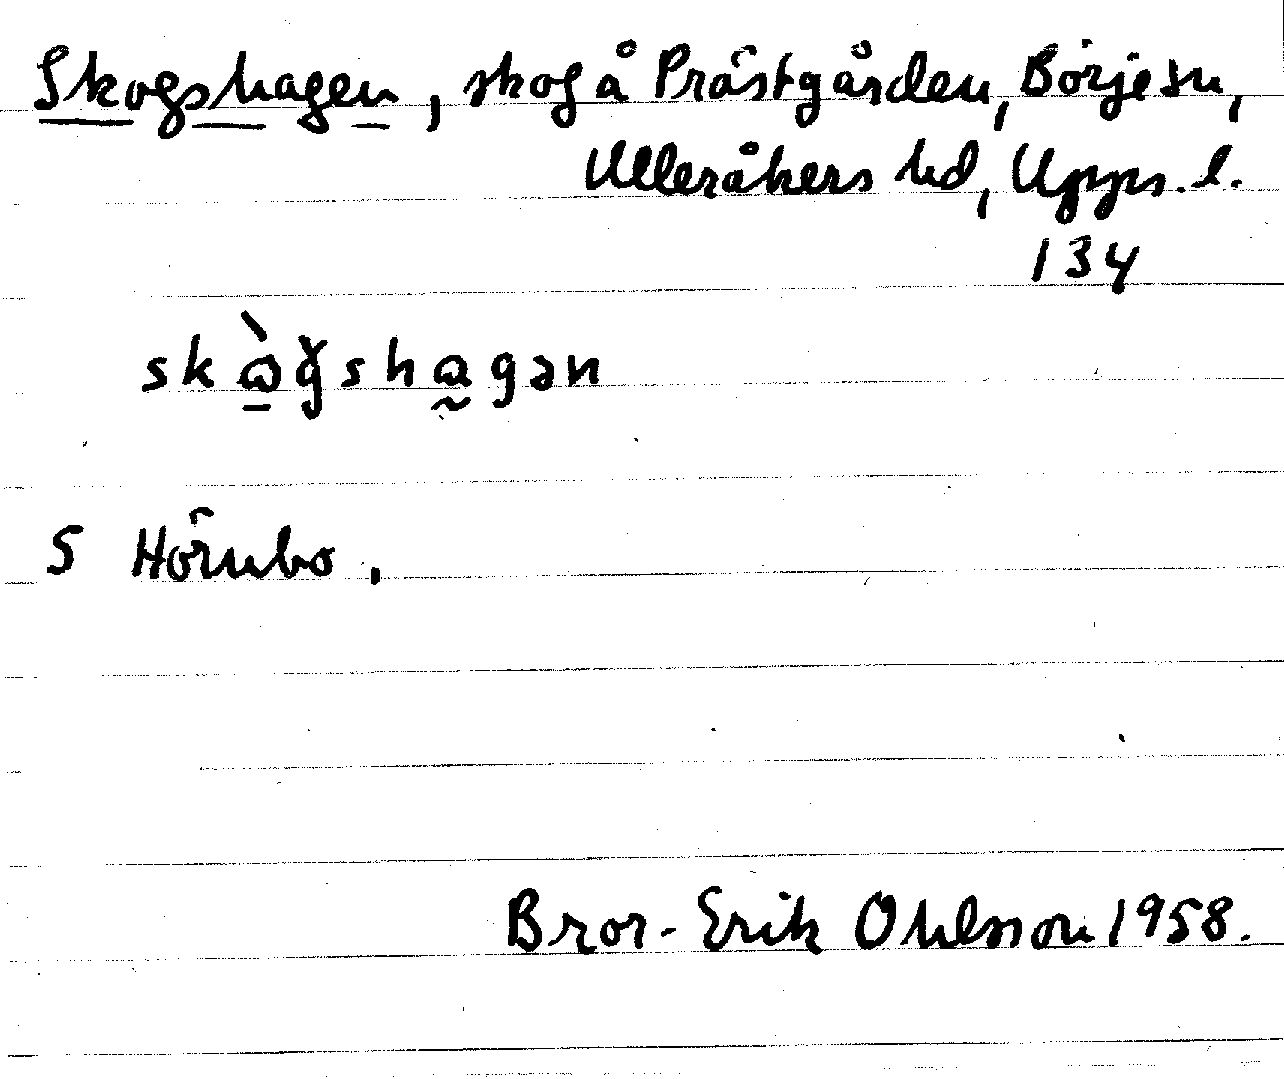 Skogshagen, skog å Prästgården, Börje sn,
Ulleråkers hd, Upps. l.
134
skɷ̠̀ǥsha̰gən
S Hörnbo,
Bror-Erik Ohlsson 1958.